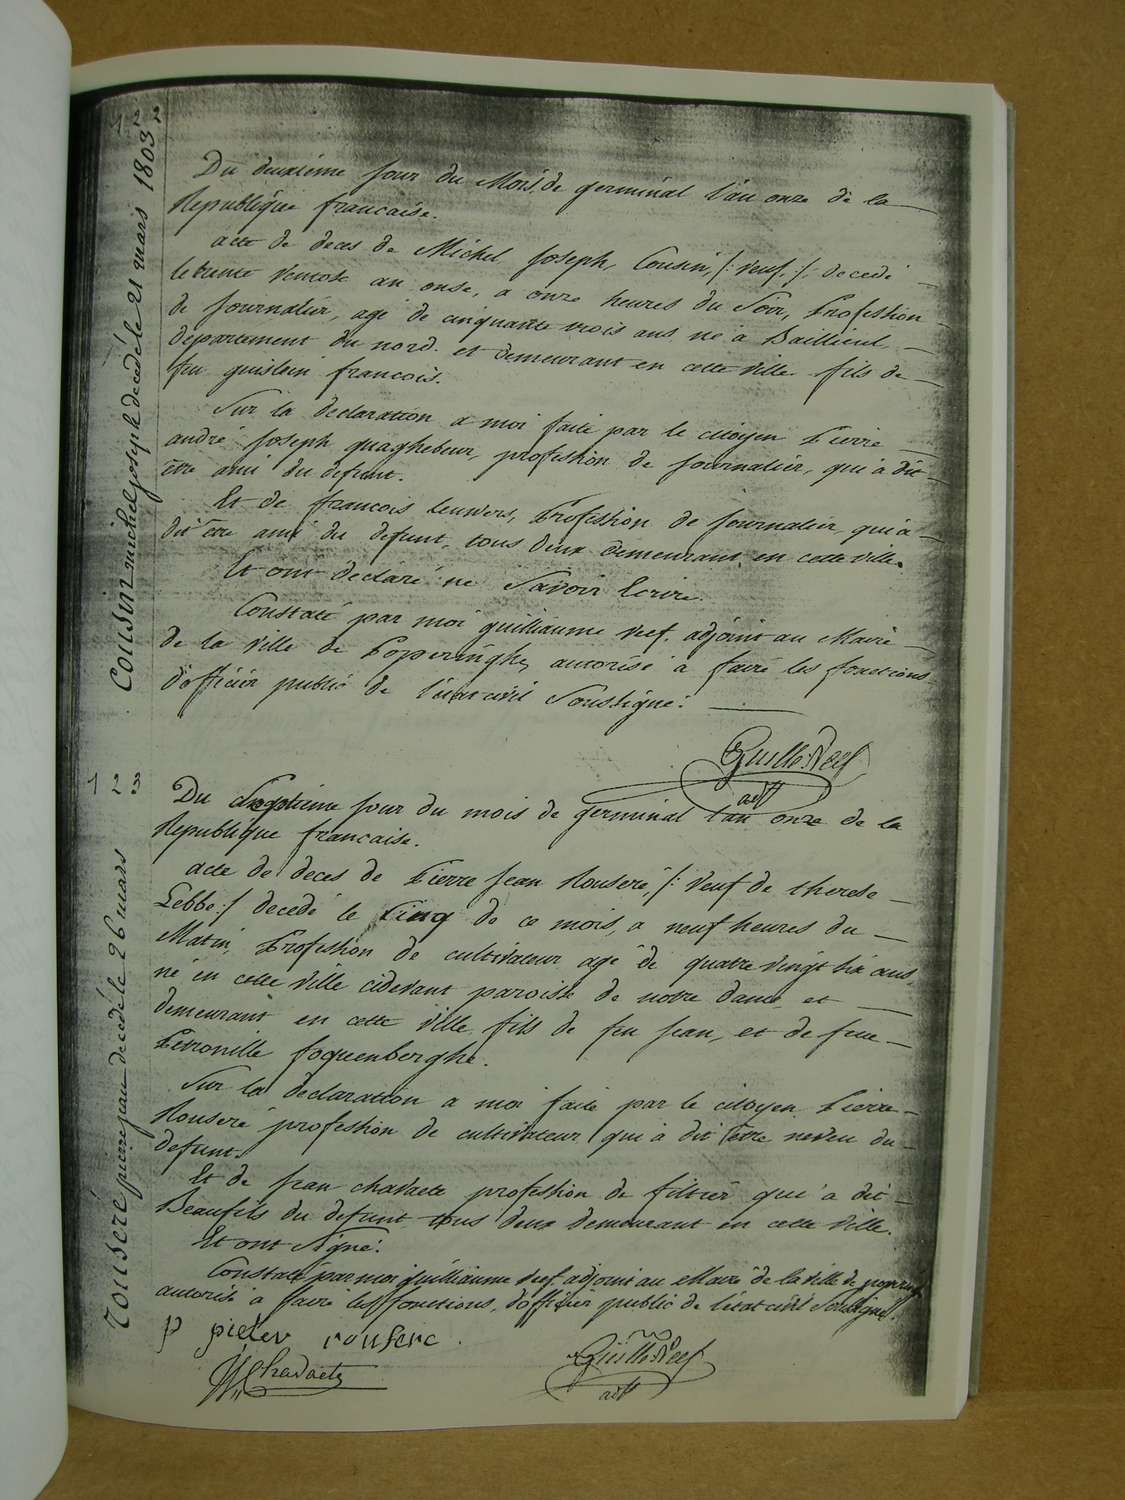 122
Cousin michel joseph decedé le 21 mars 1803
Du deuxiéme jour du Mois de germinal l'an onze de la
Republique francaise.
acte de deces de Michel Joseph Cousin /: veuf :/ decedé
le trente ventose an onse, a onze heures du Soir, Profession
de journalier, agé de cinquante trois ans né à Baillieul
département du nord et demeurant en cette ville fils de
feu guislein francois.
Sur la declaration a moi faite par le citoyen Pierre
andré Joseph quaghebeur, profession de journalier, qui à dit
être ami du defunt.
Et de francois leuwers, Profession de journalier qui à
dit être ami du defunt, tous deux demeurant en cette ville.
Et ont declaré ne Savoir Ecrire.
Constaté par moi guilliaume Neef adjoint au Maire
de la ville de Poperinghe, autorisé à faire les fonctions
d'officier public de l'état civil Soussigné.
Guille: Neef
adjt
123
Rouseré pierre jean decedé le 26 mars
Du Septiéme jour du mois de germinal l'an onze de la
Republique francaise.
acte de deces de Pierre Jean Rouseré, /: veuf de therese
Lebbe :/ decedé le cinq de ce mois, a neuf heures du
Matin, Profession de cultivateur agé de quatre vingt six ans,
né en cette ville cidevant paroisse de notre dame et
demeurant en cette ville, fils de feu Jean, et de feue
Petronille foquenberghe.
Sur la declaration a moi faite par le citoyen Pierre
Rouseré profession de cultivateur qui à dit être neveu du
defunt.
Et de Jean chavaete profession de filtier qui a dit
Beaufils du defunt tous deux demeurant en cette ville.
Et ont Signé.
Constaté par moi guilliaume Neef adjoint au Maire de la ville de
autorisé a faire les fonctions, d'officier public de l'état civil Soussigné.
p pieter rousere.
Chavaete
Guille: Neef
adjt